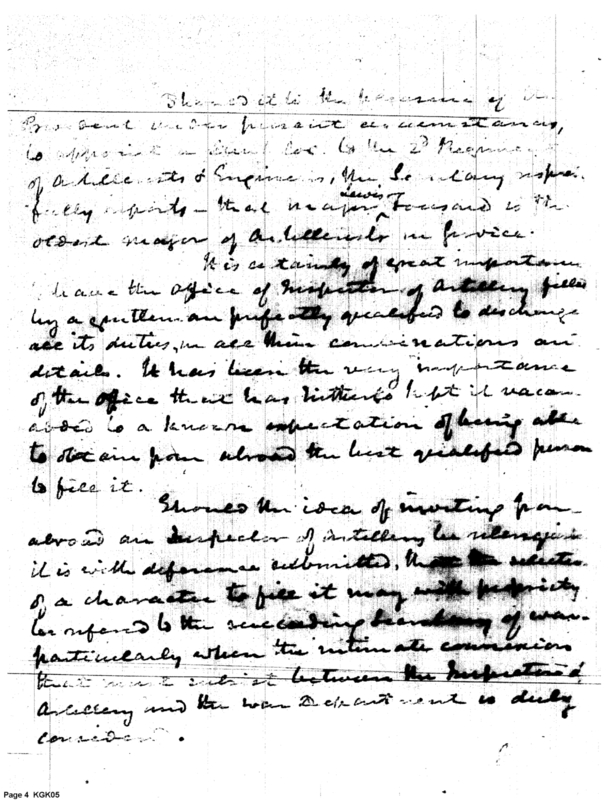 Should it be the pleasure of the
President under present circumstances,
to appoint a Lieut Col. to the 2d Regiment
of Artillerists & Engineers, the Secretary respect
fully reports - that major Lewis Tousard is the
oldest major of Artillerists in Service.
It is certainly of great importance
to have the office of Inspector of Artillery filled
by a gentleman perfectly qualified to discharge
all its duties, in all their combinations and
details. It has been the very importance
of the office that has hitherto kept it vacant
added to a known expectation of being able
to obtain from abroad the best qualified person
to fill it.
Should the idea of inviting from
abroad an Inspector of Artillery be relinquished
it is with deference submitted, that the selection
of a character to fill it may with propriety
be refered to the succeeding Secretary of war.
particularly when the intimate connexion
that must subsist between the Inspector of
Artillery and the war Department is duly
considered.
Page 4 KGK05